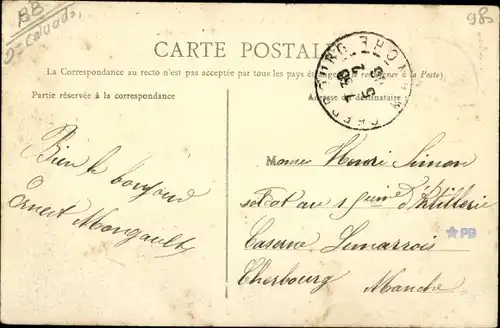 BB
D= Calvados
985
CARTE POSTALE
La Correspondance au recto n'est pas acceptée par tous les pays étrangers (se renseigner à la Poste)
Partie réservée à la correspondance
Adresse du destinataire
CHERBOURG MANCHE
Bien le bonjour
Ernest Mongault
Mome Henri Simon
soldat au 1 d'Artillerie
Caserne Lemarrois
Cherbourg Manche
PB